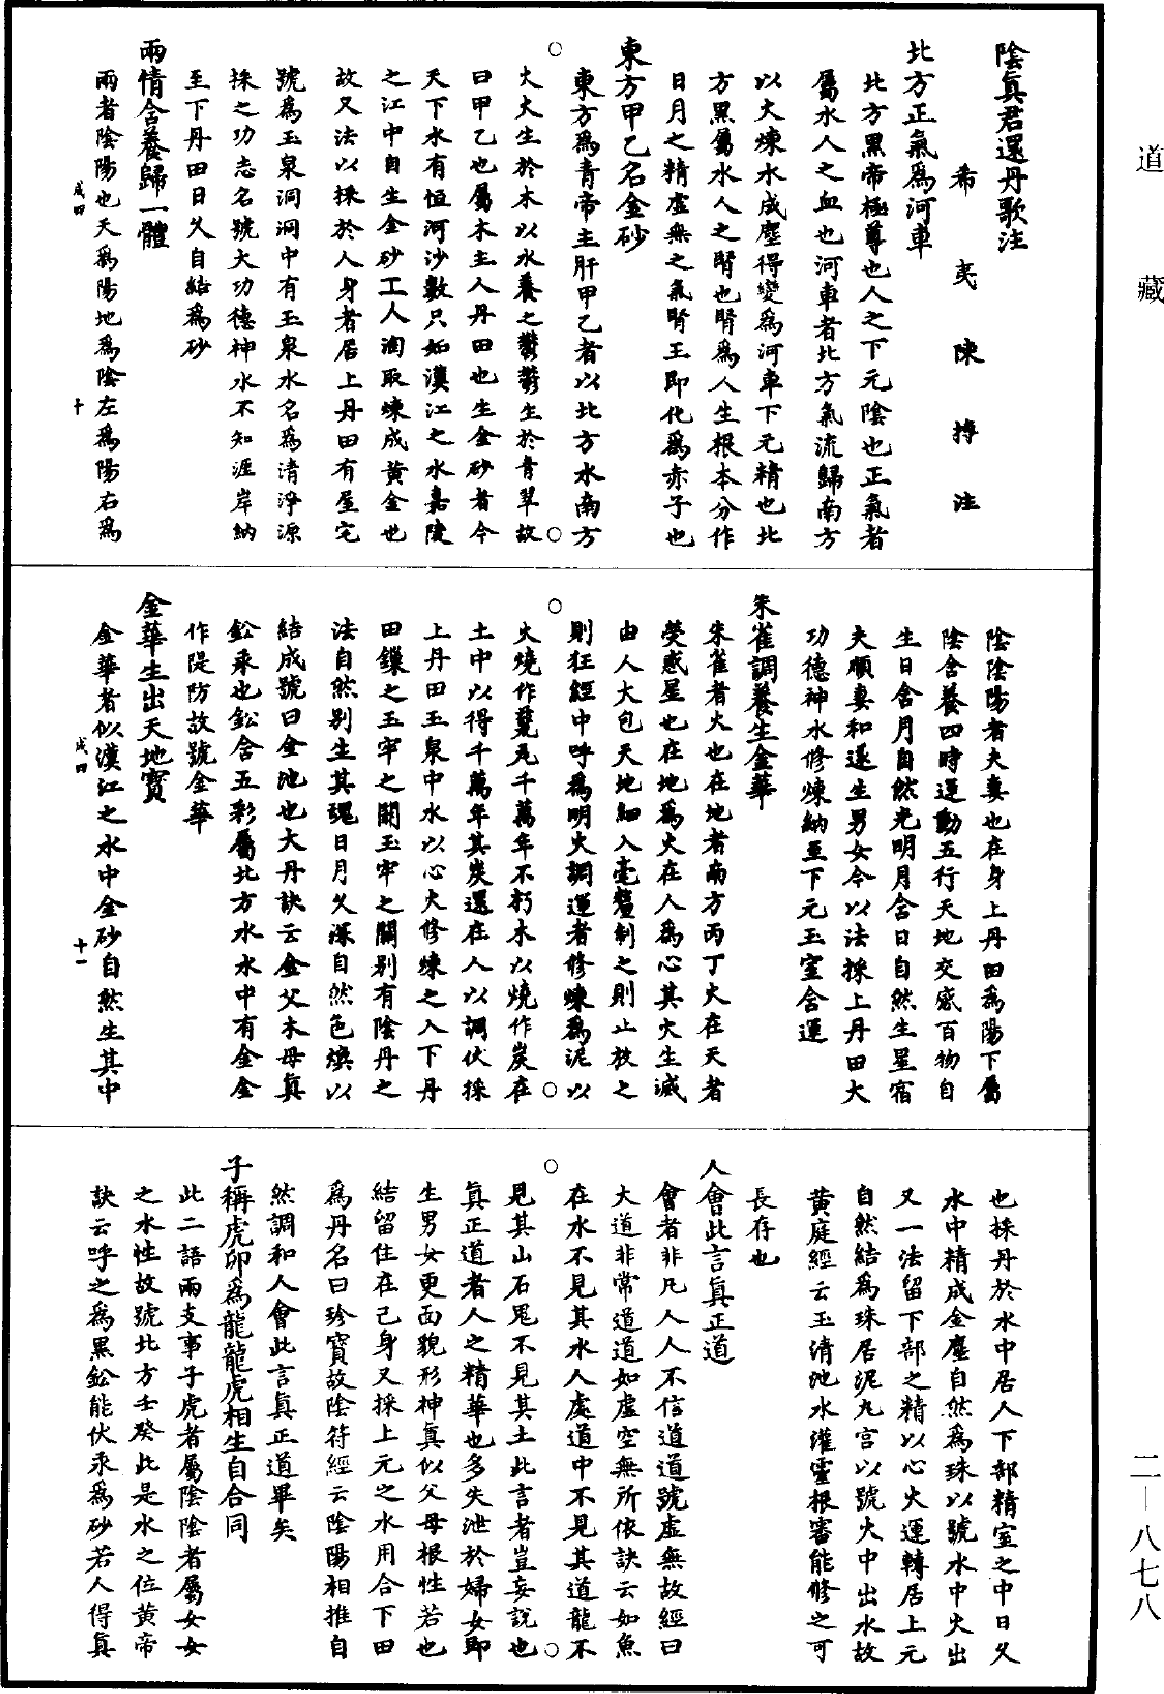 道藏
陰真君還丹歌注
希夷陳摶注
北方正氣爲河車
北方黑帝極尊也人之下元陰也正氣者
屬水人之血也河車者北方氣流歸南方
以火煉水成塵得變爲河車下元精也北
方黑屬水人之腎也腎爲人生根本分作
日月之精虛無之氣腎王即化爲赤子也
東方甲乙名金砂
東方爲青帝主肝甲乙者以北方水南方
火火生於木以水養之鬱鬱生於青翠故
曰甲乙也屬木主人丹田也生金砂者今
天下水有恒河沙數只如漢江之水嘉陵
之江中自生金砂工人淘取煉成黃金也
故又法以採於人身者居上丹田有屋宅
號爲玉泉洞洞中有玉泉水名爲清淨源
採之功志名號大功德神水不知涯岸納
至下丹田日久自結爲砂
兩情含養歸一體
兩者陰陽也天爲陽地爲陰左爲陽右爲
咸四 十
陰陰陽者夫妻也在身上丹田爲陽下屬
陰含養四時運動五行天地交感百物自
生日含月自然光明月含日自然生星宿
夫順妻和遂生男女今以法採上丹田大
功德神水修煉納至下元玉室含運
朱雀調養生金華
朱雀者火也在地者南方丙丁火在天者
熒惑星也在地爲火在人爲心其火生滅
由人大包天地細入毫釐制之則止放之
則狂經中呼爲明火調運者修煉爲泥以
火燒作甕瓦千萬年不朽木以燒作炭在
土中以得千萬年其炭還在人以調伏採
上丹田玉泉中水以心火修煉之入下丹
田鏁之玉牢之關玉牢之關別有陰丹之
法自然別生其魂日月久深自然色煥以
結成號曰金池也大丹訣云金父木母真
鈆汞也鈆含五彩屬北方水水中有金金
作隄防故號金華
金華生出天地寶
金華者似漢江之水中金砂自然生其中
咸四 十一
也採丹於水中居人下部精室之中日久
水中精成金塵自然爲珠以號水中火出
又一法留下部之精以心火運轉居上元
自然結爲珠居泥丸宮以號火中出水故
黃庭經云玉清池水灌靈根審能修之可
長存也
人會此言真正道
會者非凡人人不信道道號虛無故經曰
大道非常道道如虛空無所依訣云如魚
在水不見其水人處道中不見其道龍不
見其山石鬼不見其土此言者豈妄說也
真正道者人之精華也多失泄於婦女即
生男女更面貌形神真似父母根性若也
結留住在己身又採上元之水用合下田
爲丹名曰珍寶故陰符經云陰陽相推自
然調和人會此言真正道畢矣
子稱虎卯爲龍龍虎相生自合同
此二語兩支事子虎者屬陰陰者屬女女
之水性故號北方壬癸此是水之位黃帝
訣云呼之爲黑鈆能伏汞爲砂若人得真
二—八七八